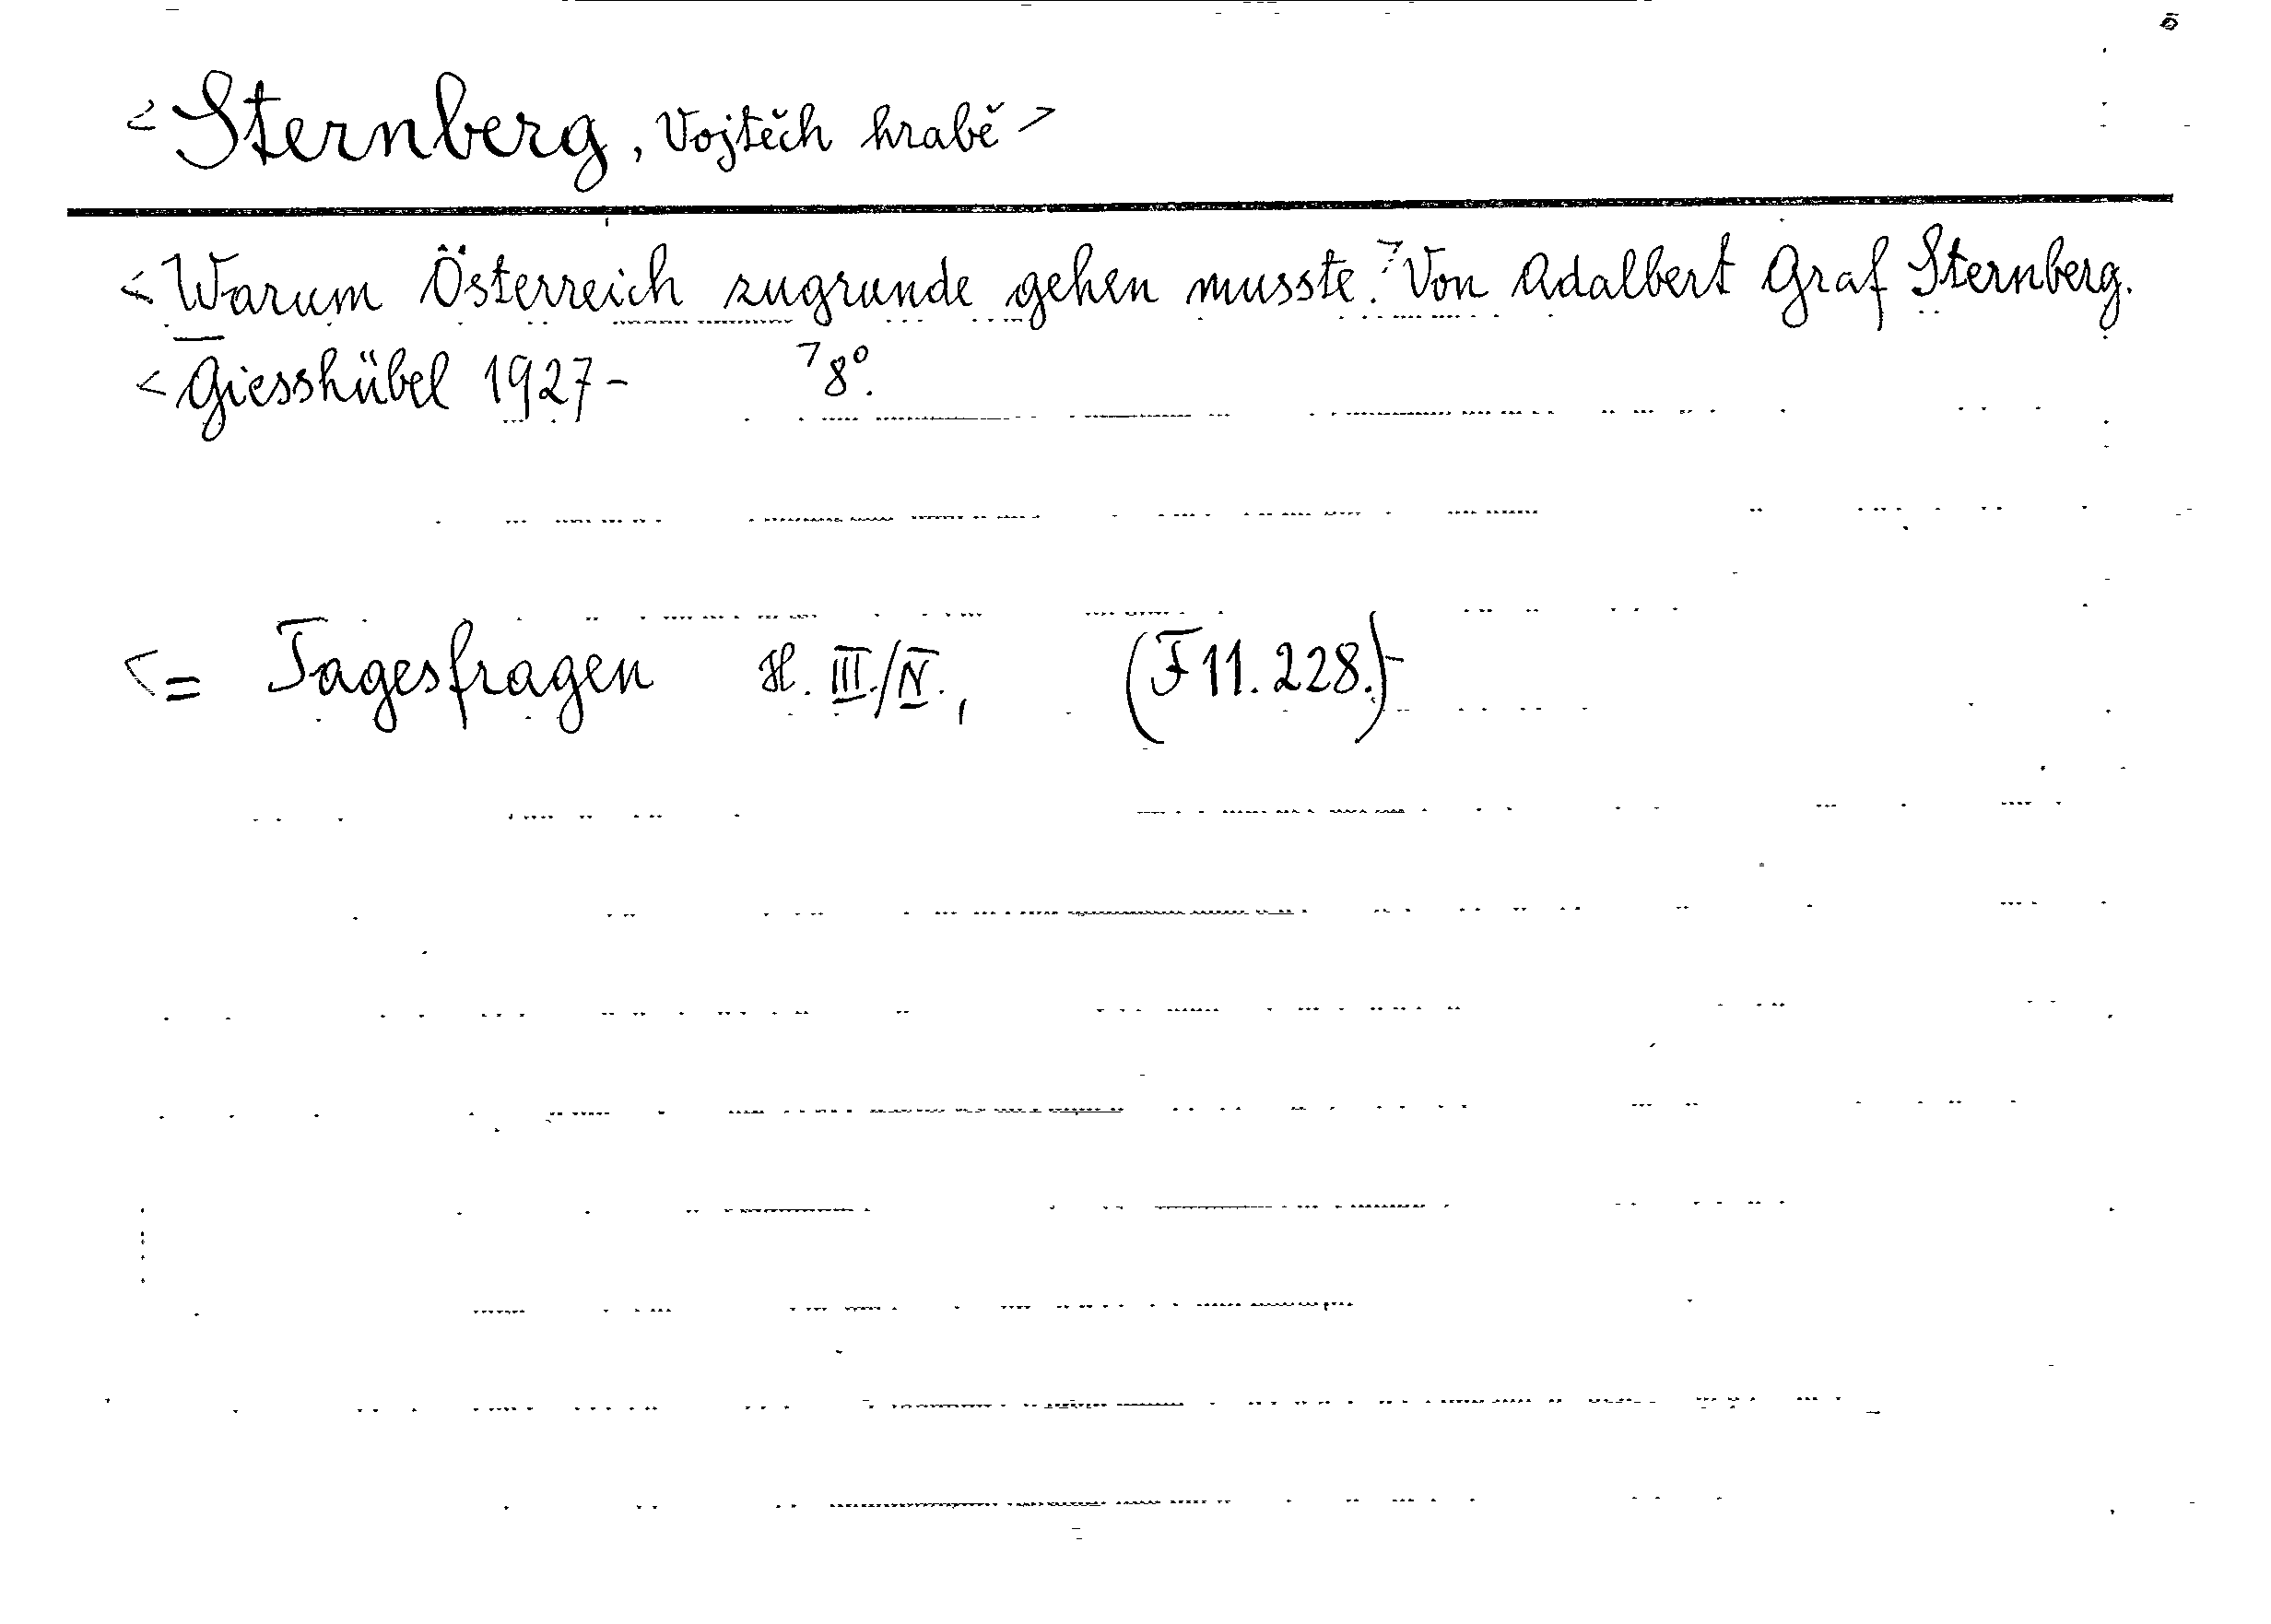 <Sternberg, Vojtěch hrabě>
<Warum Österreich zugrunde gehen musste.> Von Adalbert Graf Sternberg.
<Giesshübel 1927- >8º.
<= Tagesfragen H. III./IV., (F 11.228.)-